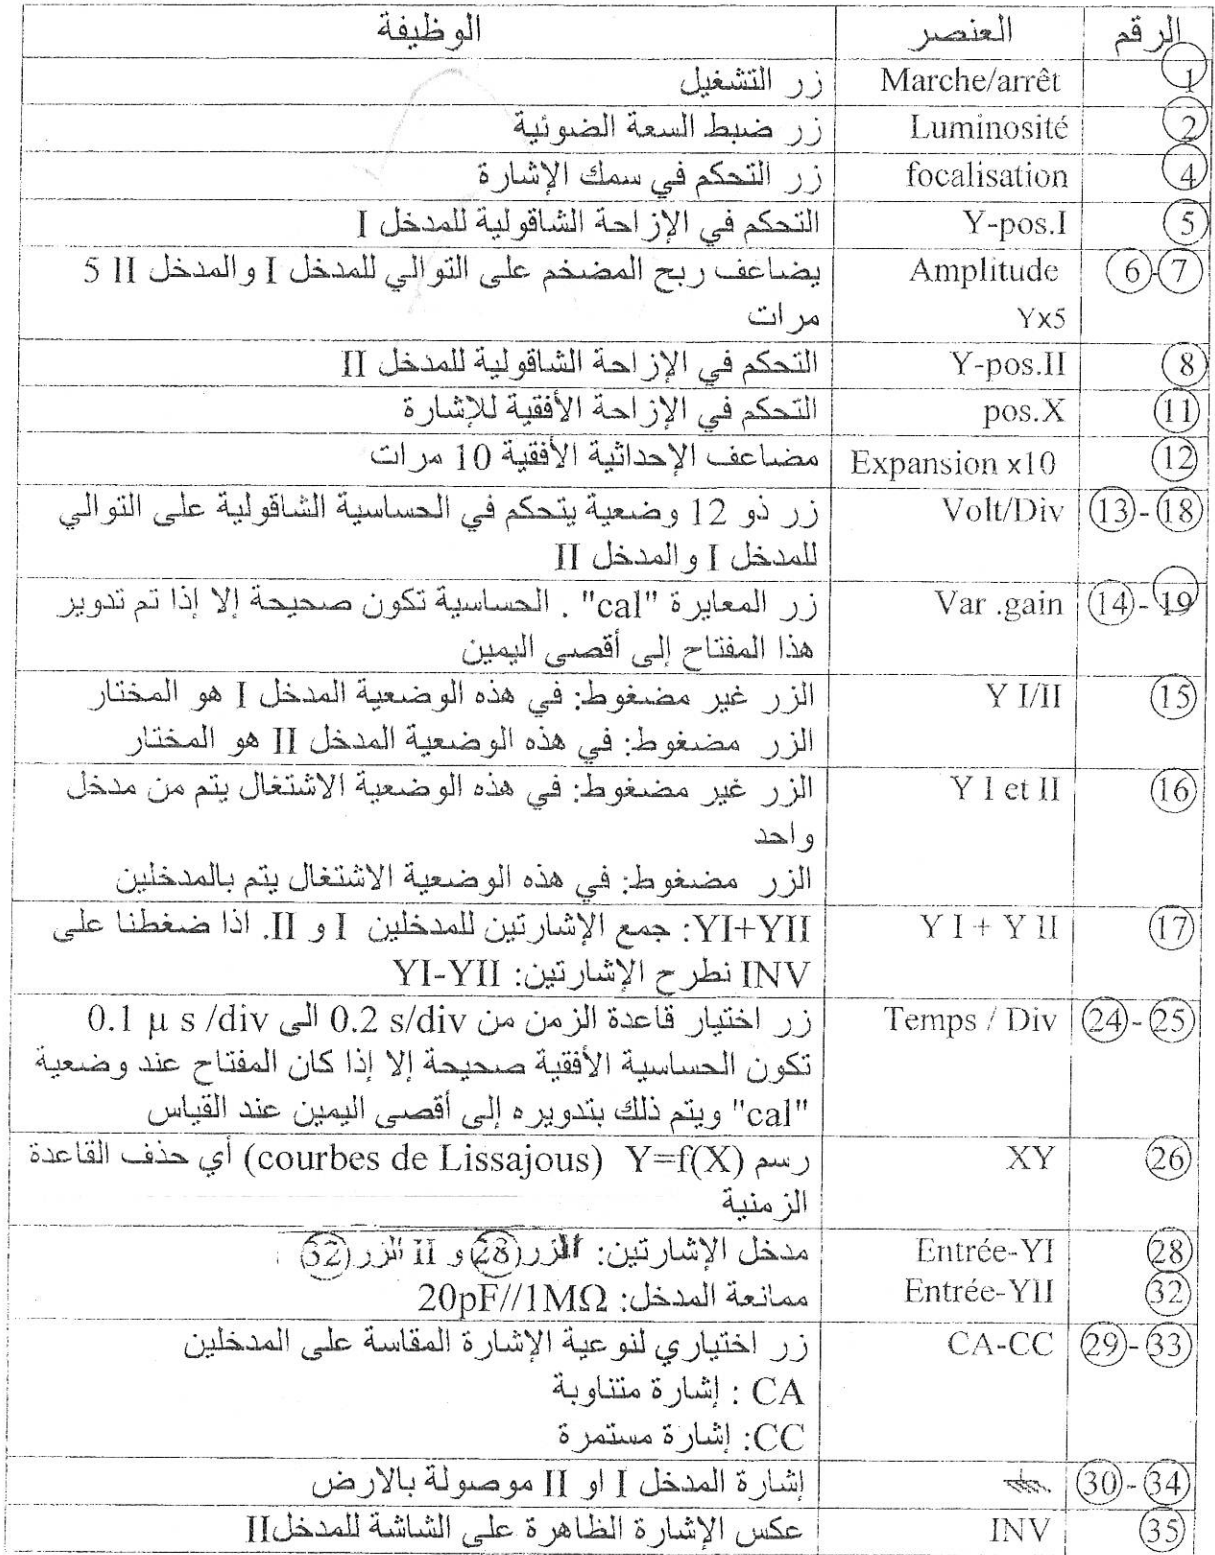 الرقم العنصر الوظيفة
1 Marche/arrêt زر التشغيل
2 Luminosité زر ضبط السعة الضوئية
4 focalisation زر التحكم في سمك الإشارة
5 Y-pos.I التحكم في الإزاحة الشاقولية للمدخل I
6-7 Amplitude يضاعف ربح المضخم على التوالي للمدخل I والمدخل II 5
Yx5 مرات
8 Y-pos.II التحكم في الإزاحة الشاقولية للمدخل II
11 pos.X التحكم في الإزاحة الأفقية للإشارة
12 Expansion x10 مضاعف الإحداثية الأفقية 10 مرات
13-18 Volt/Div زر ذو 12 وضعية يتحكم في الحساسية الشاقولية على التوالي
للمدخل I والمدخل II
14-19 Var .gain زر المعايرة "cal" . الحساسية تكون صحيحة إلا إذا تم تدوير
هذا المفتاح إلى أقصى اليمين
15 Y I/II الزر غير مضغوط: في هذه الوضعية المدخل I هو المختار
الزر مضغوط: في هذه الوضعية المدخل II هو المختار
16 Y I et II الزر غير مضغوط: في هذه الوضعية الاشتغال يتم من مدخل
واحد
الزر مضغوط: في هذه الوضعية الاشتغال يتم بالمدخلين
17 Y I + Y II YI+YII: جمع الإشارتين للمدخلين I و II. اذا ضغطنا على
INV نطرح الإشارتين: YI-YII
24-25 Temps / Div زر اختيار قاعدة الزمن من 0.2 s/div الى 0.1 µ s /div
تكون الحساسية الأفقية صحيحة إلا إذا كان المفتاح عند وضعية
"cal" ويتم ذلك بتدويره إلى أقصى اليمين عند القياس
26 XY رسم Y=f(X) (courbes de Lissajous) أي حذف القاعدة
الزمنية
28 Entrée-YI مدخل الإشارتين: I الزر 28 و II الزر 32 .
32 Entrée-YII ممانعة المدخل: 20pF//1MΩ
29-33 CA-CC زر اختياري لنوعية الإشارة المقاسة على المدخلين
CA : إشارة متناوبة
CC: إشارة مستمرة
30-34 إشارة المدخل I او II موصولة بالارض
35 INV عكس الإشارة الظاهرة على الشاشة للمدخلII